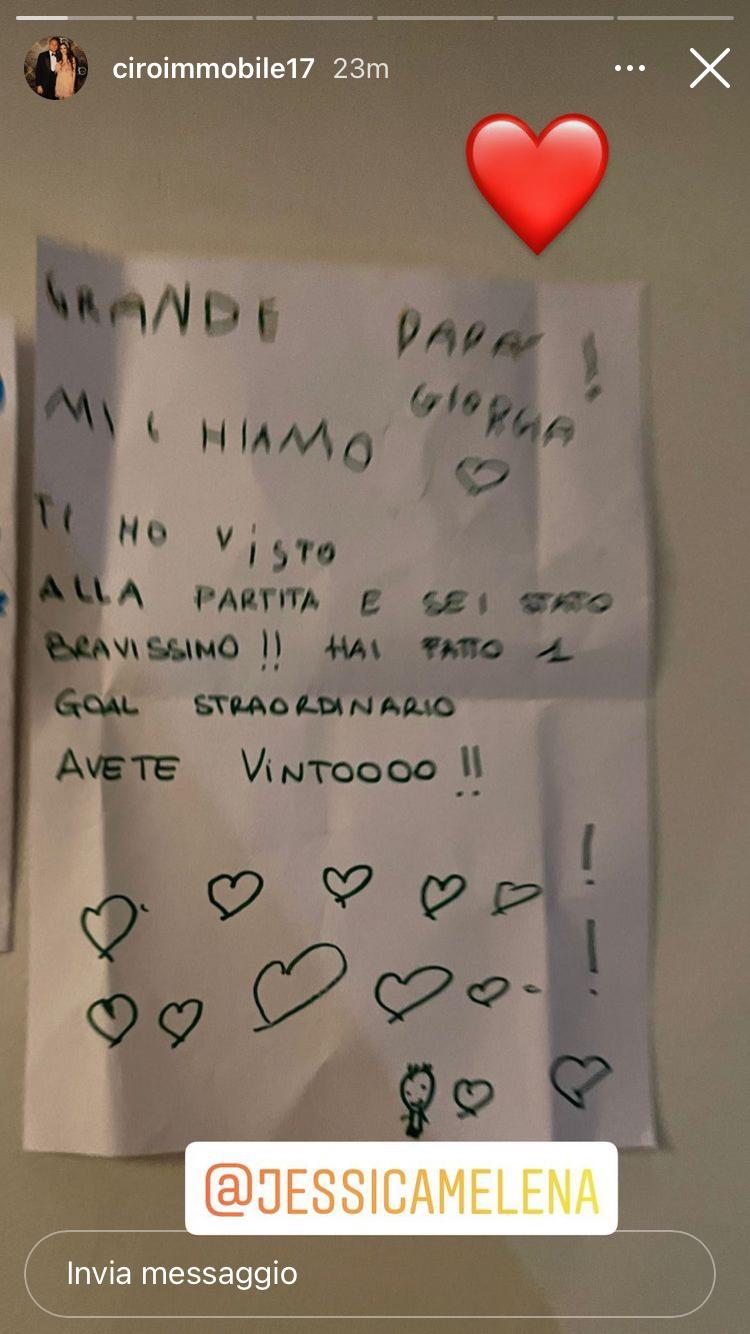 ciroimmobile17 23m
GRANDE PAPA !
MI CHIAMO GIORGIA
TI HO ViSTO
ALLA PARTITA E SEI STATO
BRAVISSIMO !! HAI FATTO 1
GOAL STRAORDINARIO
AVETE ViNTOOOO !!
!
!
@JESSICAMELENA
Invia messaggio